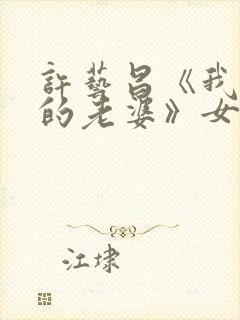 許藝昌《我
的老婆》女
江埭